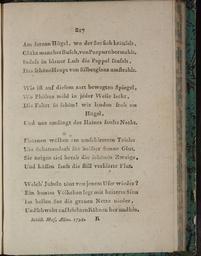 217
Am fernen Hügel, wo der See sich kräuselt,
Indeß in blauer Luft die Pappel säuselt,
Das schöne Haupt von Silberglanz umstrahlt.
Wie ist auf diesem zart bewegten Spiegel,
Wo Phöbus mild in jeder Welle lacht,
Die Fahrt so schön! wir landen stolz am
Hügel,
Und uns umfängt des Haines Nacht.
Platanen wölben am umschilften Teiche
Ein Schattendach für heißer Sonne Glut,
Sie neigen tief herab die schönen Zweige,
Und küssen sanft die still verklärte Flut.
Welch' Jubeln tönt von jenem Ufer wieder?
Ein braunes Völkchen legt mit heiterm Sinn
Im hellen See die grauen Netze nieder,
Und schwebt auf leichten Kähnen her und hin.
Schill. Mus. Alm. 1798. R